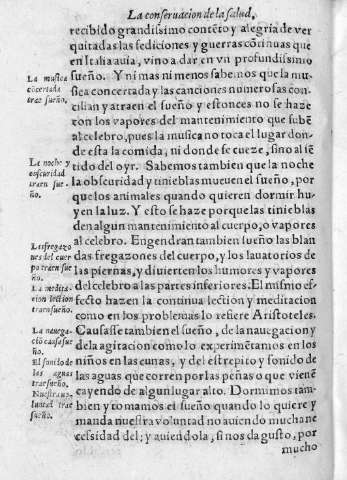 La conseruacion de la salud,
recibido grandissimo contēto y alegria de ver
quitadas las sediciones y guerras cōtinuas que
en Italia auia, vino a dar en vn profundissimo
sueño. Y ni mas ni menos sabemos que la mu-
sica concertada y las canciones numerosas con-
cilian y atraen el sueño y estonces no se haze
con los vapores del mantenimiento que subē
al celebro, pues la musica no toca el lugar don-
de esta la comida, ni donde se cueze, sino al sē
tido del oyr. Sabemos tambien que la noche
la obscuridad y tinieblas mueuen el sueño, por
que los animales quando quieren dormir hu-
yen la luz. Y esto se haze porque las tinieblas
den algun mantenimiento al cuerpo, o vapores
al celebro. Engendran tambien sueño las blan
das fregazones del cuerpo, y los lauatorios de
las piernas, y diuierten los humores y vapores
del celebro a las partes inferiores. El mismo ef-
fecto hazen la continua lection y meditacion
como en los problemas lo refiere Aristoteles.
Causasse tambien el sueño, de la nauegacion y
de la agitacion como lo experimētamos en los
niños en las cunas, y del estrepito y sonido de
las aguas que corren por las peñas o que vienē
cayendo de algun lugar alto. Dormimos tam-
bien y tomamos el sueño quando lo quiere y
manda nuestra voluntad no auiendo mucha ne
cessidad del; y auiendola, si nos da gusto, por
mucho
La musica
cōcertada
trae sueño.
La noche y
obscuridad
traen sue-
ño.
Les fregazo
nes del cuer
po traen sue
ño.
La medita-
cion lection
traen sueño.
La nauega-
ciō causa sue
ño.
El sonido de
las aguas
trae sueño.
Nuestra vo-
luntad trae
sueño.